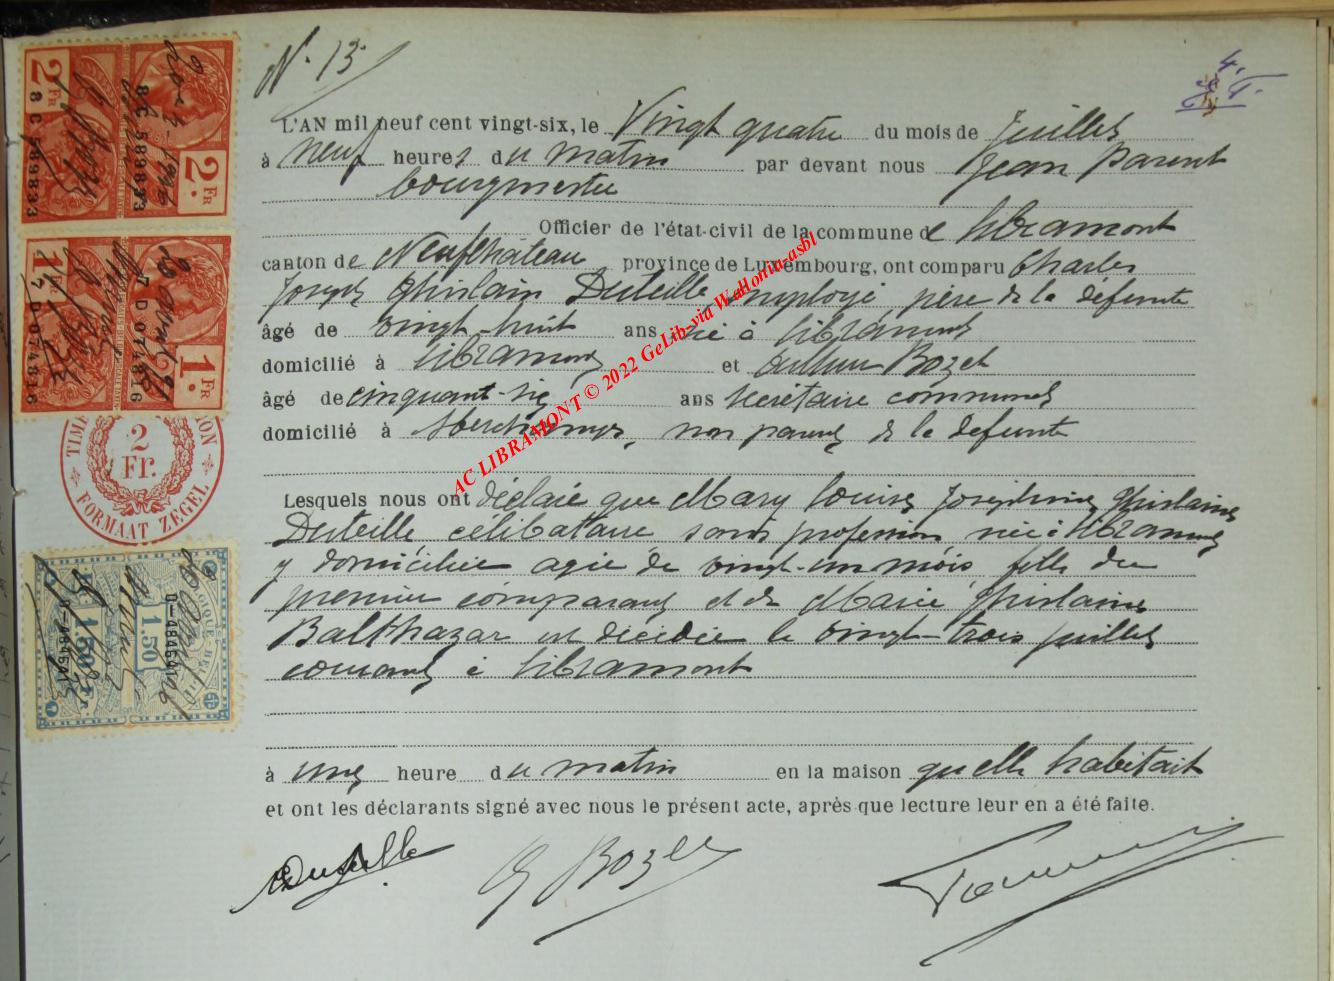 N. 13.
L'AN mil neuf cent vingt-six, le Vingt quatre du mois de Juillet
à neuf heures du matin par devant nous Jean Parent
bourgmestre
Officier de l'état-civil de la commune de Libramont
canton de Neufchâteau province de Luxembourg, ont comparu Charles
Joseph Ghislain Duteille employé père de la défunte
âgé de vingt-huit ans né à Libramont
domicilié à Libramont et Bozet
âgé de cinquant-six ans secrétaire communal
domicilié à non parent de la defunte
Lesquels nous ont déclaré que Mary Louise Joséphine Ghislaine
Duteille célibataire sans profession née à Libramont
y domiciliée agée de vingt-un mois fille du
premier comparant et de Marie Ghislaine
Balthazar est décédée le vingt-trois juillet
courant à Libramont
à une heure du matin en la maison qu'elle habitait
et ont les déclarants signé avec nous le présent acte, après que lecture leur en a été faite.
Duteille Bozet
AC LIBRAMONT © 2022 GeLib via Wallonia-asbl
2 FR
8 C 589833
2. FR
8 C 589833
1 FR
7 D 074816
1. FR
7 D 074816
2
Fr.
FORMAAT ZEGEL
1.50
D-484541
1.50 Fr.
D-484541